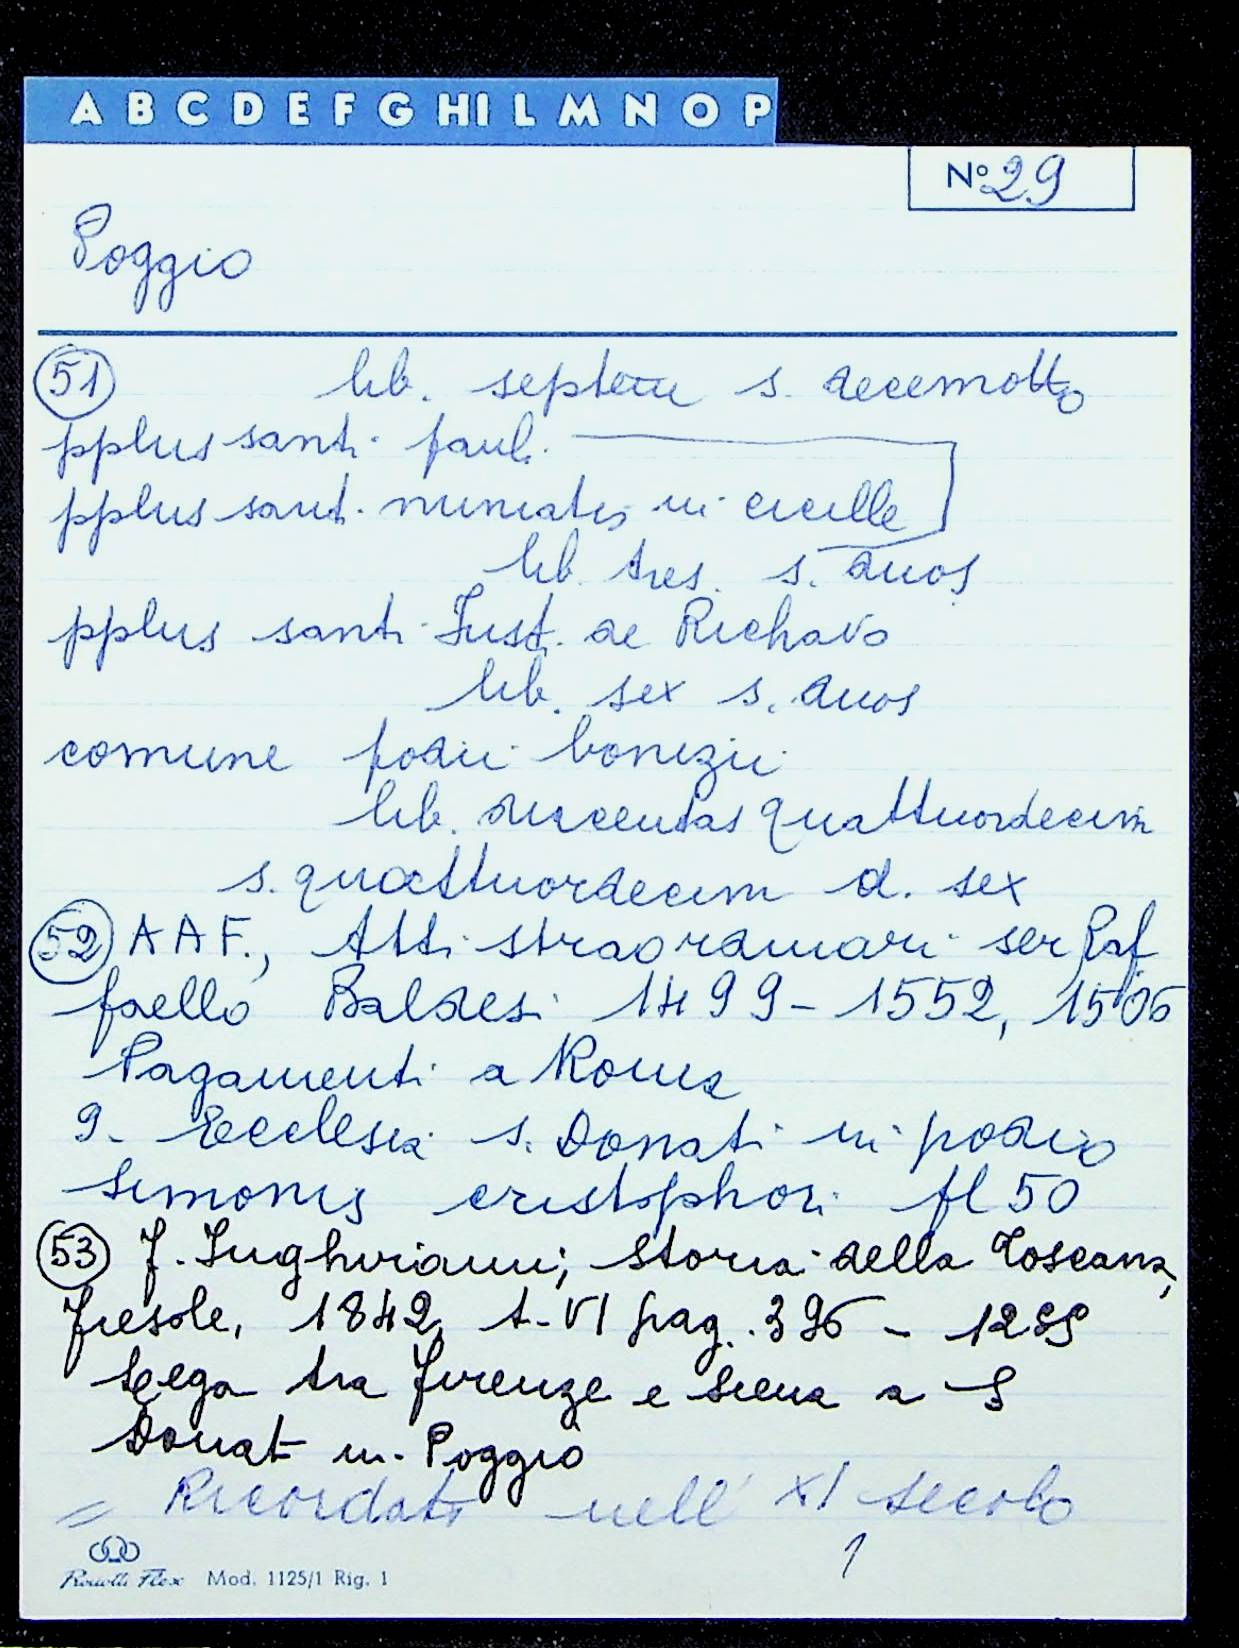 A B C D E F G HI L M N O P
N° 29
Poggio
51 lib. septem s. decemotto
pplus santi pauli
pplus sant. miniatis in cicille
lib. tres. s. duos
pplus santi Iust. de Richavo
lib. sex s. duos
comune podii bonizii
lib. ducentas quattuordecim
s. quattuordecim d. sex
52 A A F., Atti straordinari ser Raf
faello Baldesi 1499-1552, 1506
Pagamenti a Roma
9- Ecclesia s. Donati in podio
Simonis cristophori fl 50
53 F. Inghirami; Storia della Toscana,
Fiesole, 1842, t-VI pag. 396 - 1255
Lega tra Firenze e Siena a S
Donat in Poggio
= Ricordato nell' XI secolo
1
Mod. 1125/1 Rig. 1